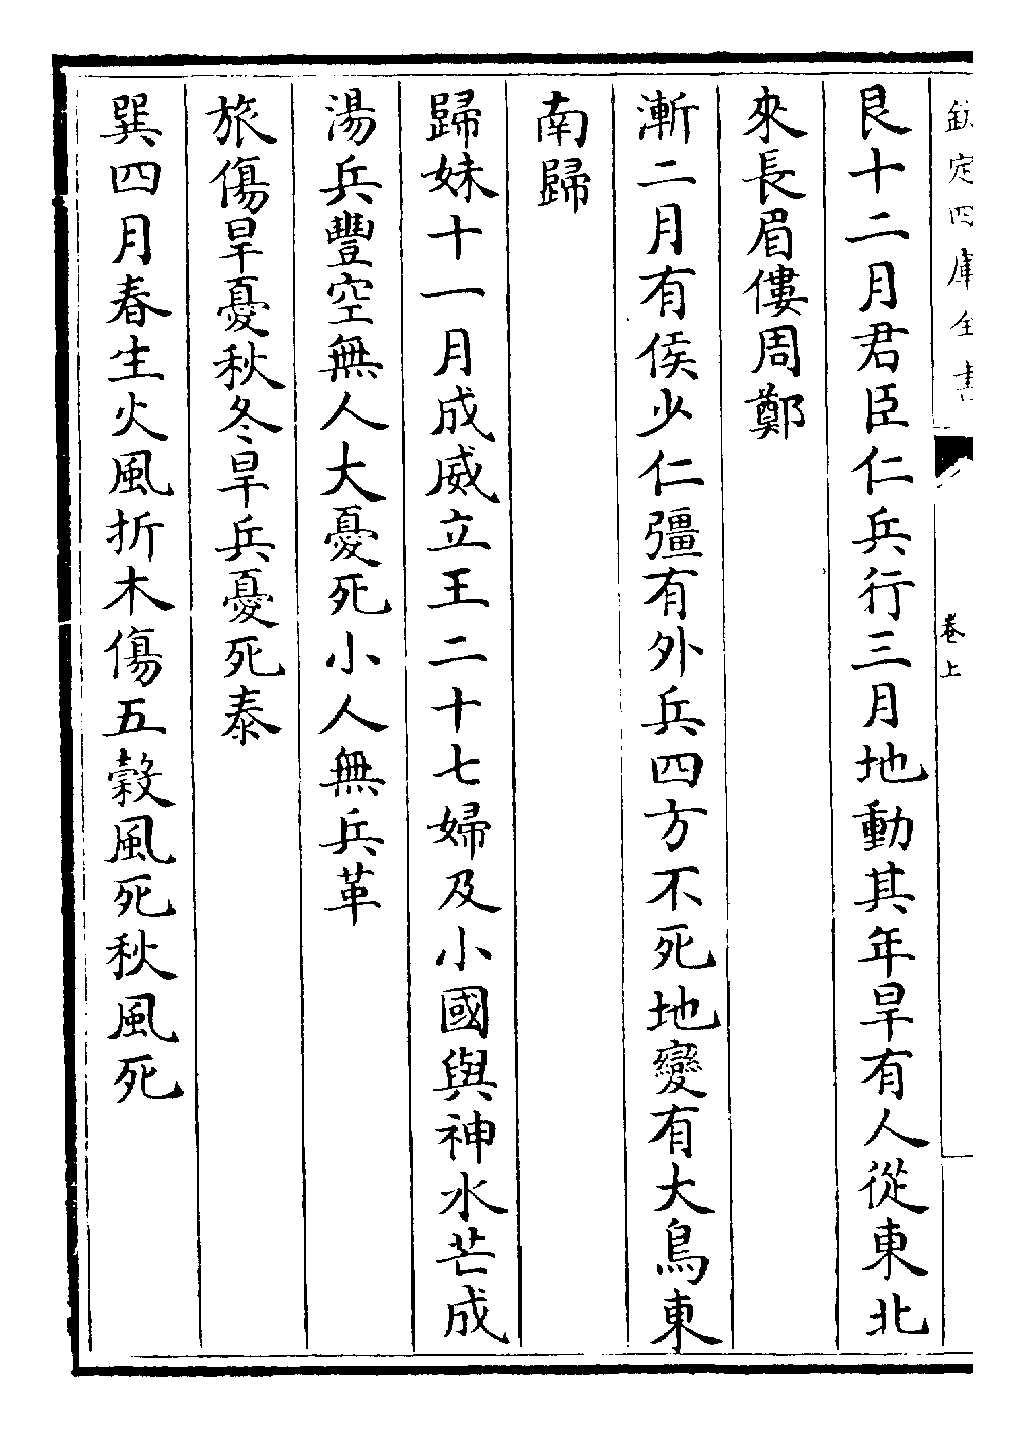 欽定四庫全書
卷上
艮十二月君臣仁兵行三月地動其年旱有人從東北
來長眉僂周鄭
漸二月有侯少仁彊有外兵四方不死地變有大鳥東
南歸
歸妹十一月成威立王二十七婦及小國與神水芒成
湯兵豐空無人大憂死小人無兵革
旅傷旱憂秋冬旱兵憂死泰
巽四月春生火風折木傷五穀風死秋風死